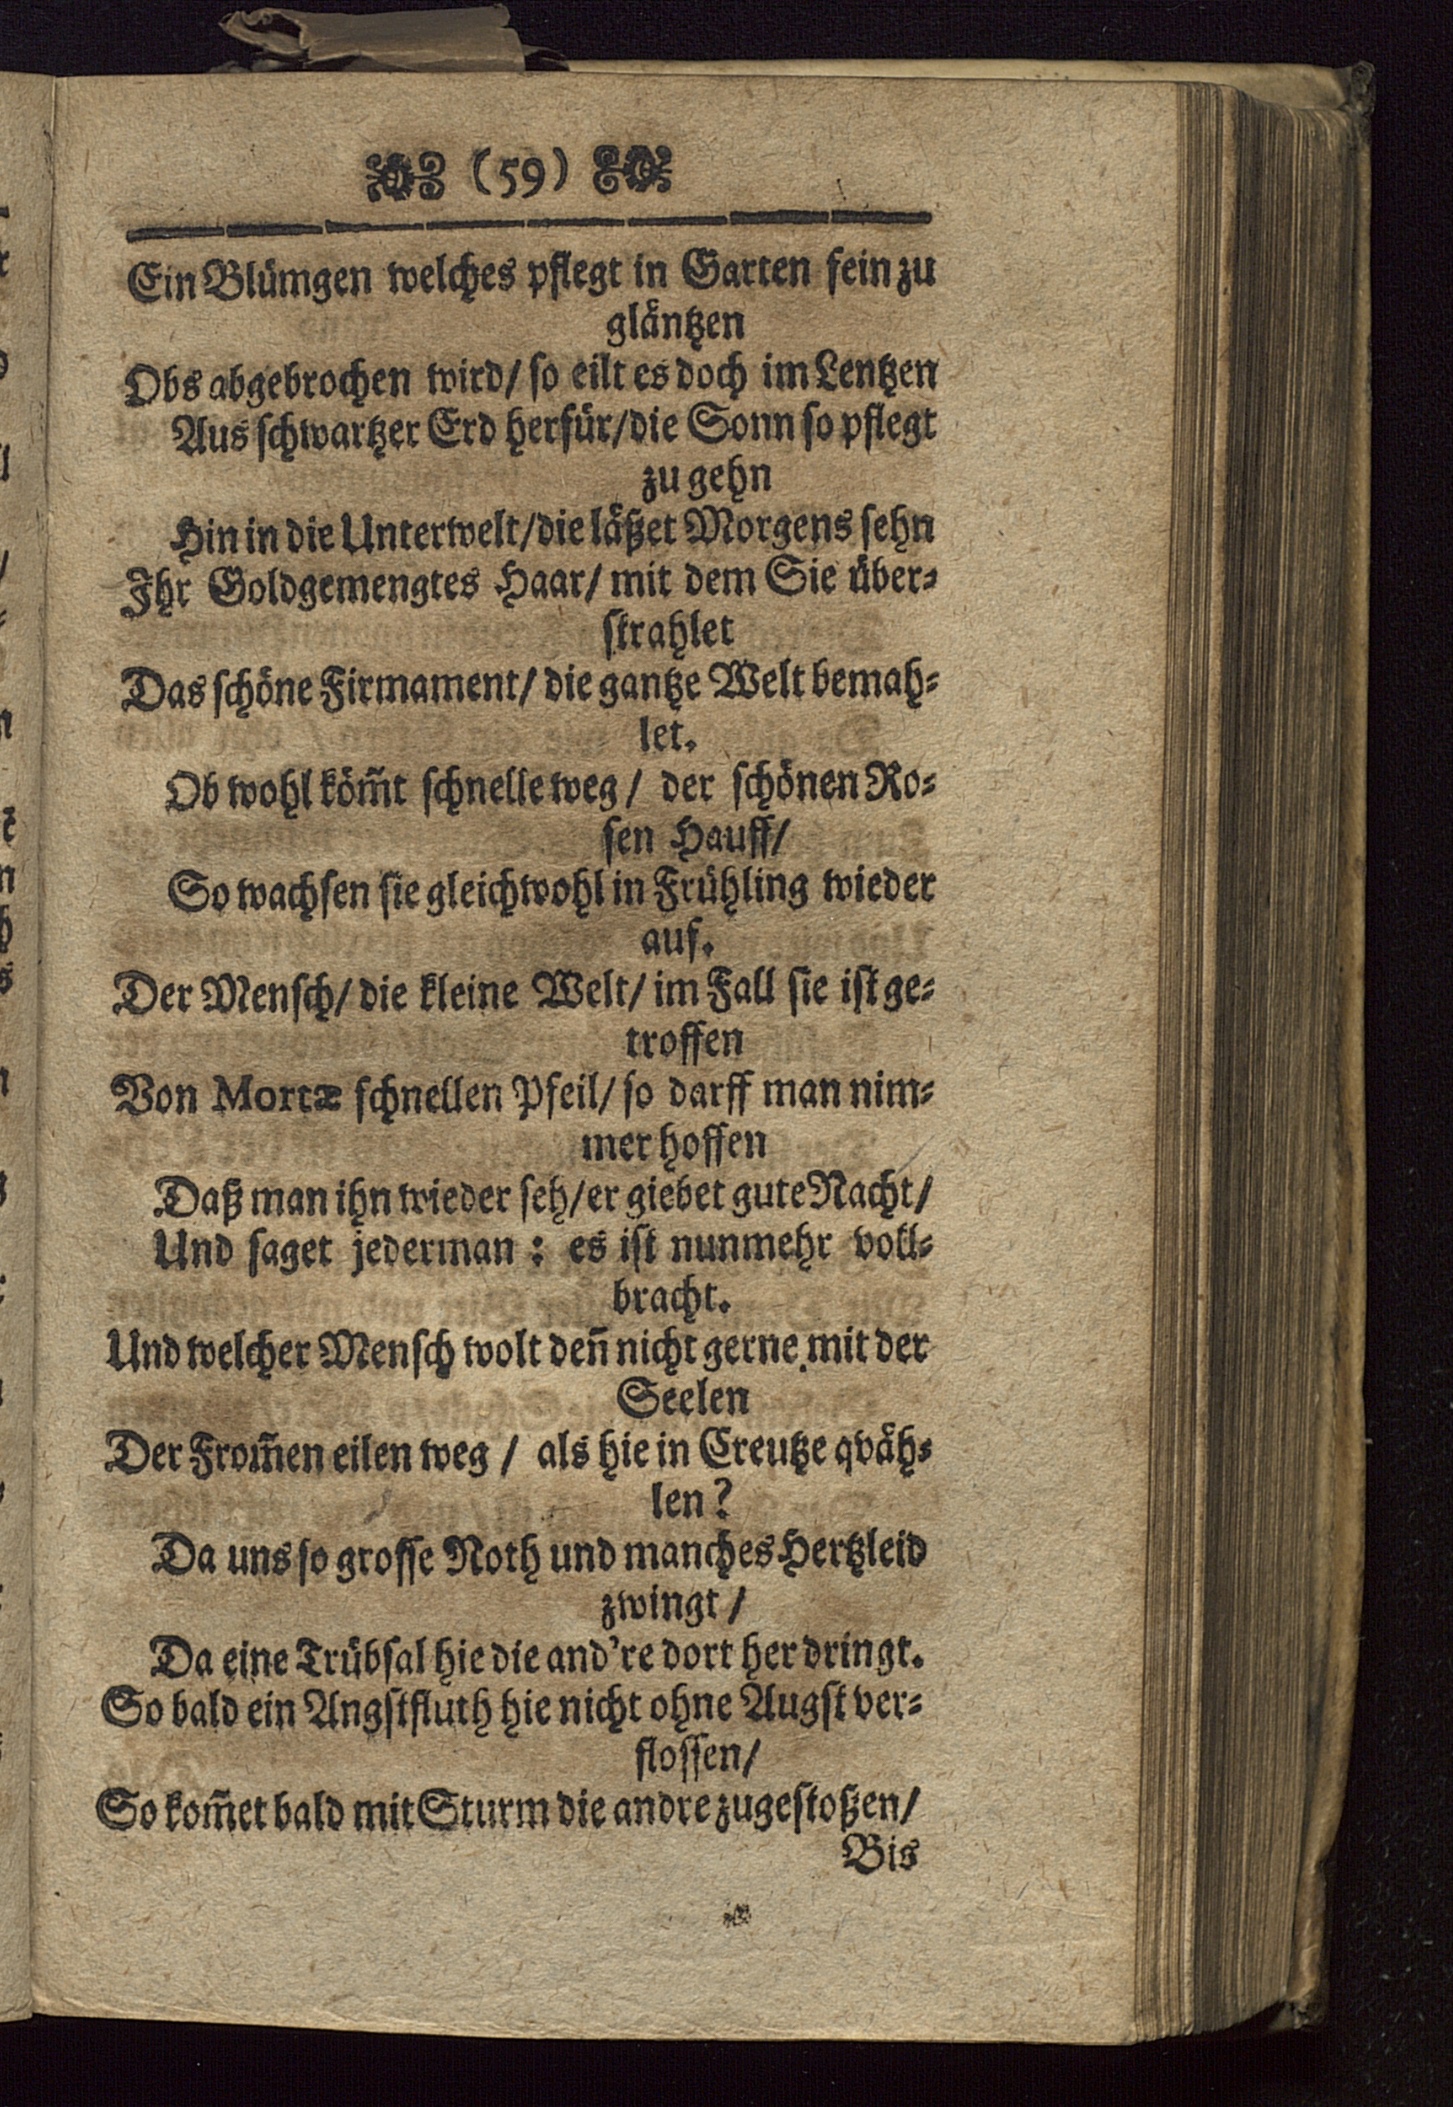 (59)
Ein Blümgen welches pflegt in Garten fein zu
gläntzen
Obs abgebrochen wird/ so eilt es doch im Lentzen
Aus schwartzer Erd herfür/die Sonn so pflegt
zu gehn
Hin in die Unterwelt/die läßet Morgens sehn
Ihr Goldgemengtes Haar/ mit dem Sie über-
strahlet
Das schöne Firmament/ die gantze Welt bemah-
let.
Ob wohl köm̃t schnelle weg/ der schönen Ro-
sen Hauff/
So wachsen sie gleichwohl in Frühling wieder
auf.
Der Mensch/ die kleine Welt/ im Fall sie ist ge-
troffen
Von Mortæ schnellen Pfeil/ so darff man nim-
mer hoffen
Daß man ihn wieder seh/er giebet gute Nacht/
Und saget jederman: es ist nunmehr voll-
bracht.
Und welcher Mensch wolt deñ nicht gerne mit der
Seelen
Der From̃en eilen weg/ als hie in Creutze qväh-
len?
Da uns so grosse Noth und manches Hertzleid
zwingt/
Da eine Trübsal hie die and're dort her dringt.
So bald ein Angstfluth hie nicht ohne Augst ver-
flossen/
So kom̃et bald mit Sturm die andre zugestoßen/
Bis